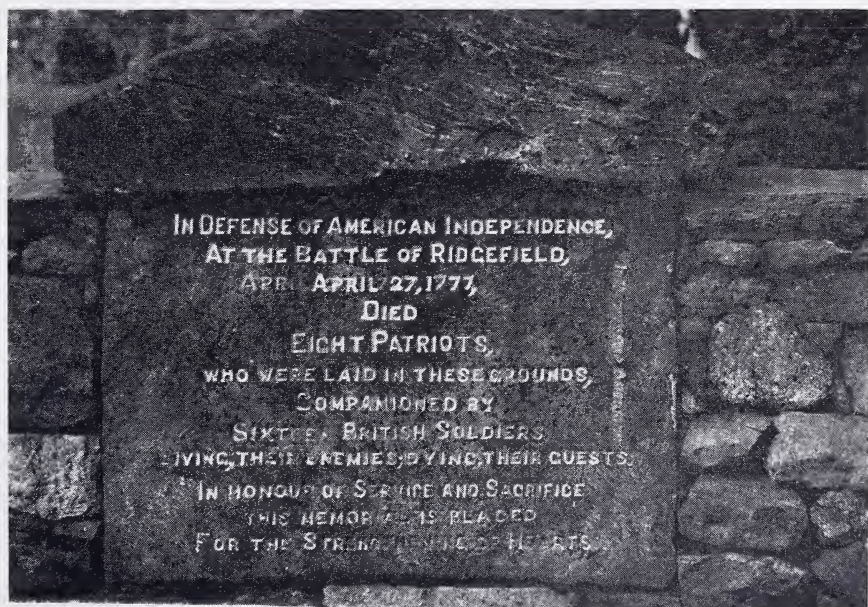 IN DEFENSE OF AMERICAN INDEPENDENCE,
AT THE BATTLE OF RIDGEFIELD,
APRIL 27, 1777,
DIED
EIGHT PATRIOTS,
WHO WERE LAID IN THESE GROUNDS,
COMPANIONED BY
SIXTEEN BRITISH SOLDIERS
LIVING, THEIR ENEMIES, DYING, THEIR GUESTS.
IN HONOUR OF SERVICE AND SACRIFICE
THIS MEMORIAL IS PLACED
FOR THE STRENGTHENING OF HEARTS.